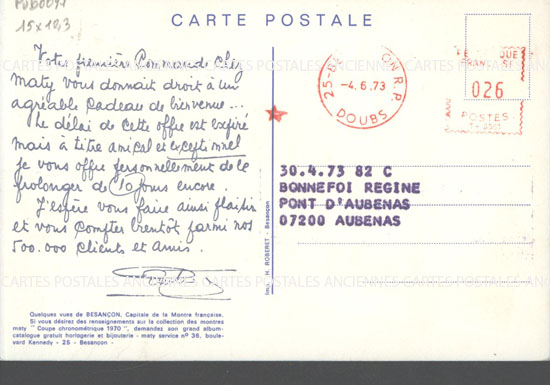 Pub0091
15x10,3
CARTE POSTALE
Votre première Commande chez
maty vous donnait droit à un
agréable Cadeau de bienvenue...
Le délai de cette offre est expiré
mais à titre amical et exceptionnel
je vous offre personnellement de le
prolonger de 10 jours encore.
J'espère vous faire ainsi plaisir
et vous compter bientôt parmi nos
500.000 clients et amis.
Quelques vues de BESANÇON, Capitale de la Montre française.
Si vous désirez des renseignements sur la collection des montres
maty "Coupe chronométrique 1970", demandez son grand album-
catalogue gratuit horlogerie et bijouterie - maty service n° 36, boule-
vard Kennedy - 25 - Besançon -
Imp. H. ROBERET - Besançon
25-BESANÇON R.P.
-4.6.73
DOUBS
026
POSTES
30.4.73 82 C
BONNEFOI REGINE
PONT D'AUBENAS
07200 AUBENAS
CARTES POSTALES ANCIENNES CARTES POSTALES ANCIENNES
CARTES POSTALES ANCIENNES CARTES POSTALES ANCIENNES